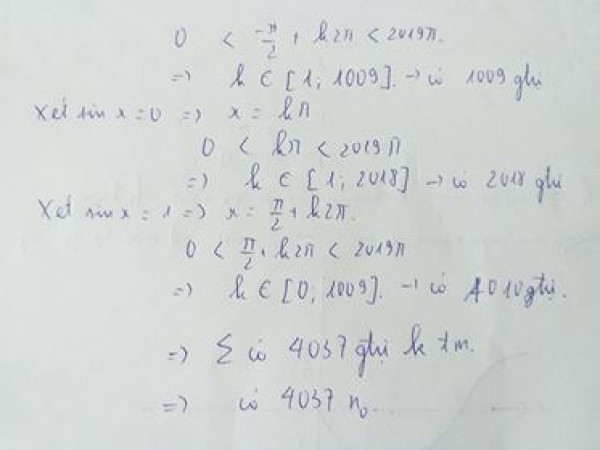 0 < -π/2 + k2π < 2019π.
=> k ∈ [1; 1009]. → có 1009 gtrị
Xét sin x = 0 => x = kπ
0 < kπ < 2019π
=> k ∈ [1; 2018] → có 2018 gtrị
Xét sin x = 1 => x = π/2 + k2π.
0 < π/2 + k2π < 2019π
=> k ∈ [0; 1009]. → có 1010 gtrị.
=> Σ có 4037 gtrị k tm.
=> có 4037 no..